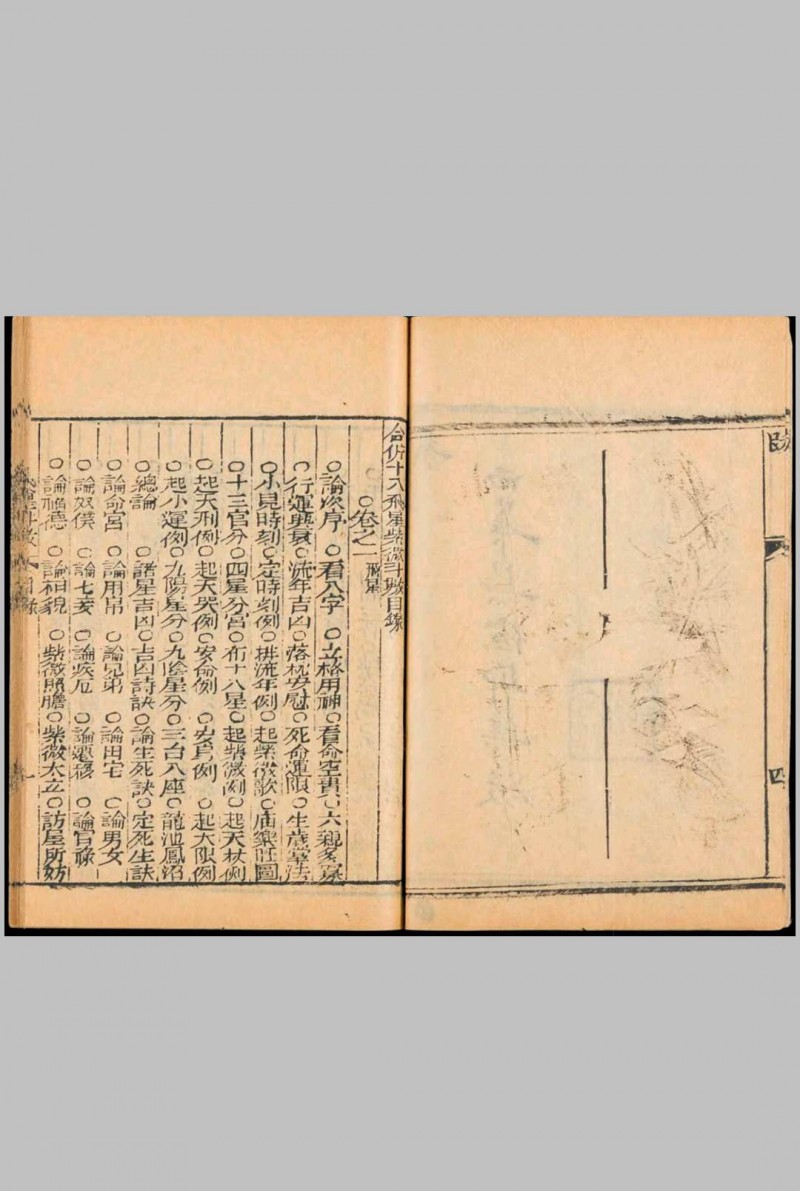 合併十八飛星紫微斗數目錄
○卷之一 飛星
○論次序 ○看八字 ○立格用神 ○看命空實 ○六親多寡
○行運興衰 ○流年吉凶 ○落枕安慰 ○死命運限 ○生歲掌法
○小見時刻 ○定時刻例 ○排流年例 ○起紫微歌 ○庙樂旺圖
○十三官分 ○四星分宮 ○布十八星 ○起紫微例 ○起天杖例
○起天刑例 ○起天哭例 ○安命例 ○安身例 ○起大限例
○起小運例 ○九陽星分 ○九陰星分 ○三台八座 ○龍池鳳沼
○總論 ○諸星吉凶 ○吉凶詩訣 ○論生死訣 ○定死生訣
○論命宮 ○論用帛 ○論兄弟 ○論田宅 ○論男女
○論奴僕 ○論七妾 ○論疾厄 ○論遷移 ○論官祿
○論福德 ○論相貌 ○紫微照膽 ○紫微太立 ○訪星所妨
目錄
四